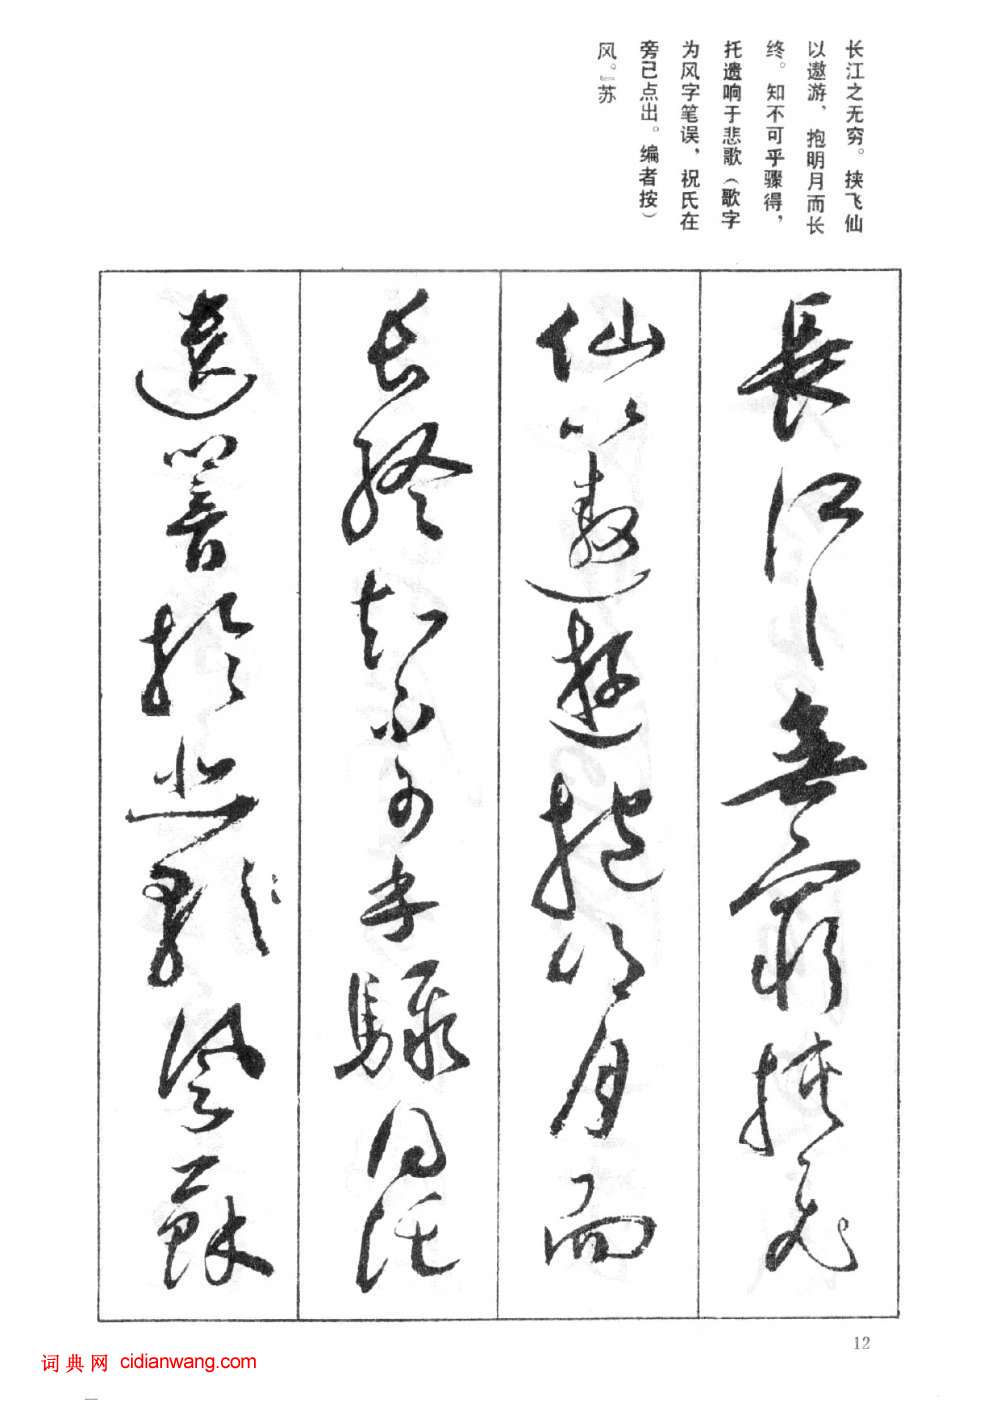 长江之无穷。挟飞仙
以遨游、抱明月而长
终。知不可乎骤得，
托遗响于悲歌（歌字
为风字笔误，祝氏在
旁已点出。编者按）
风。』苏
長江之無窮挾飛
仙以遨遊抱明月而
長終知不可乎驟得託
遺響於悲歌風蘇
12
词典网 cidianwang.com